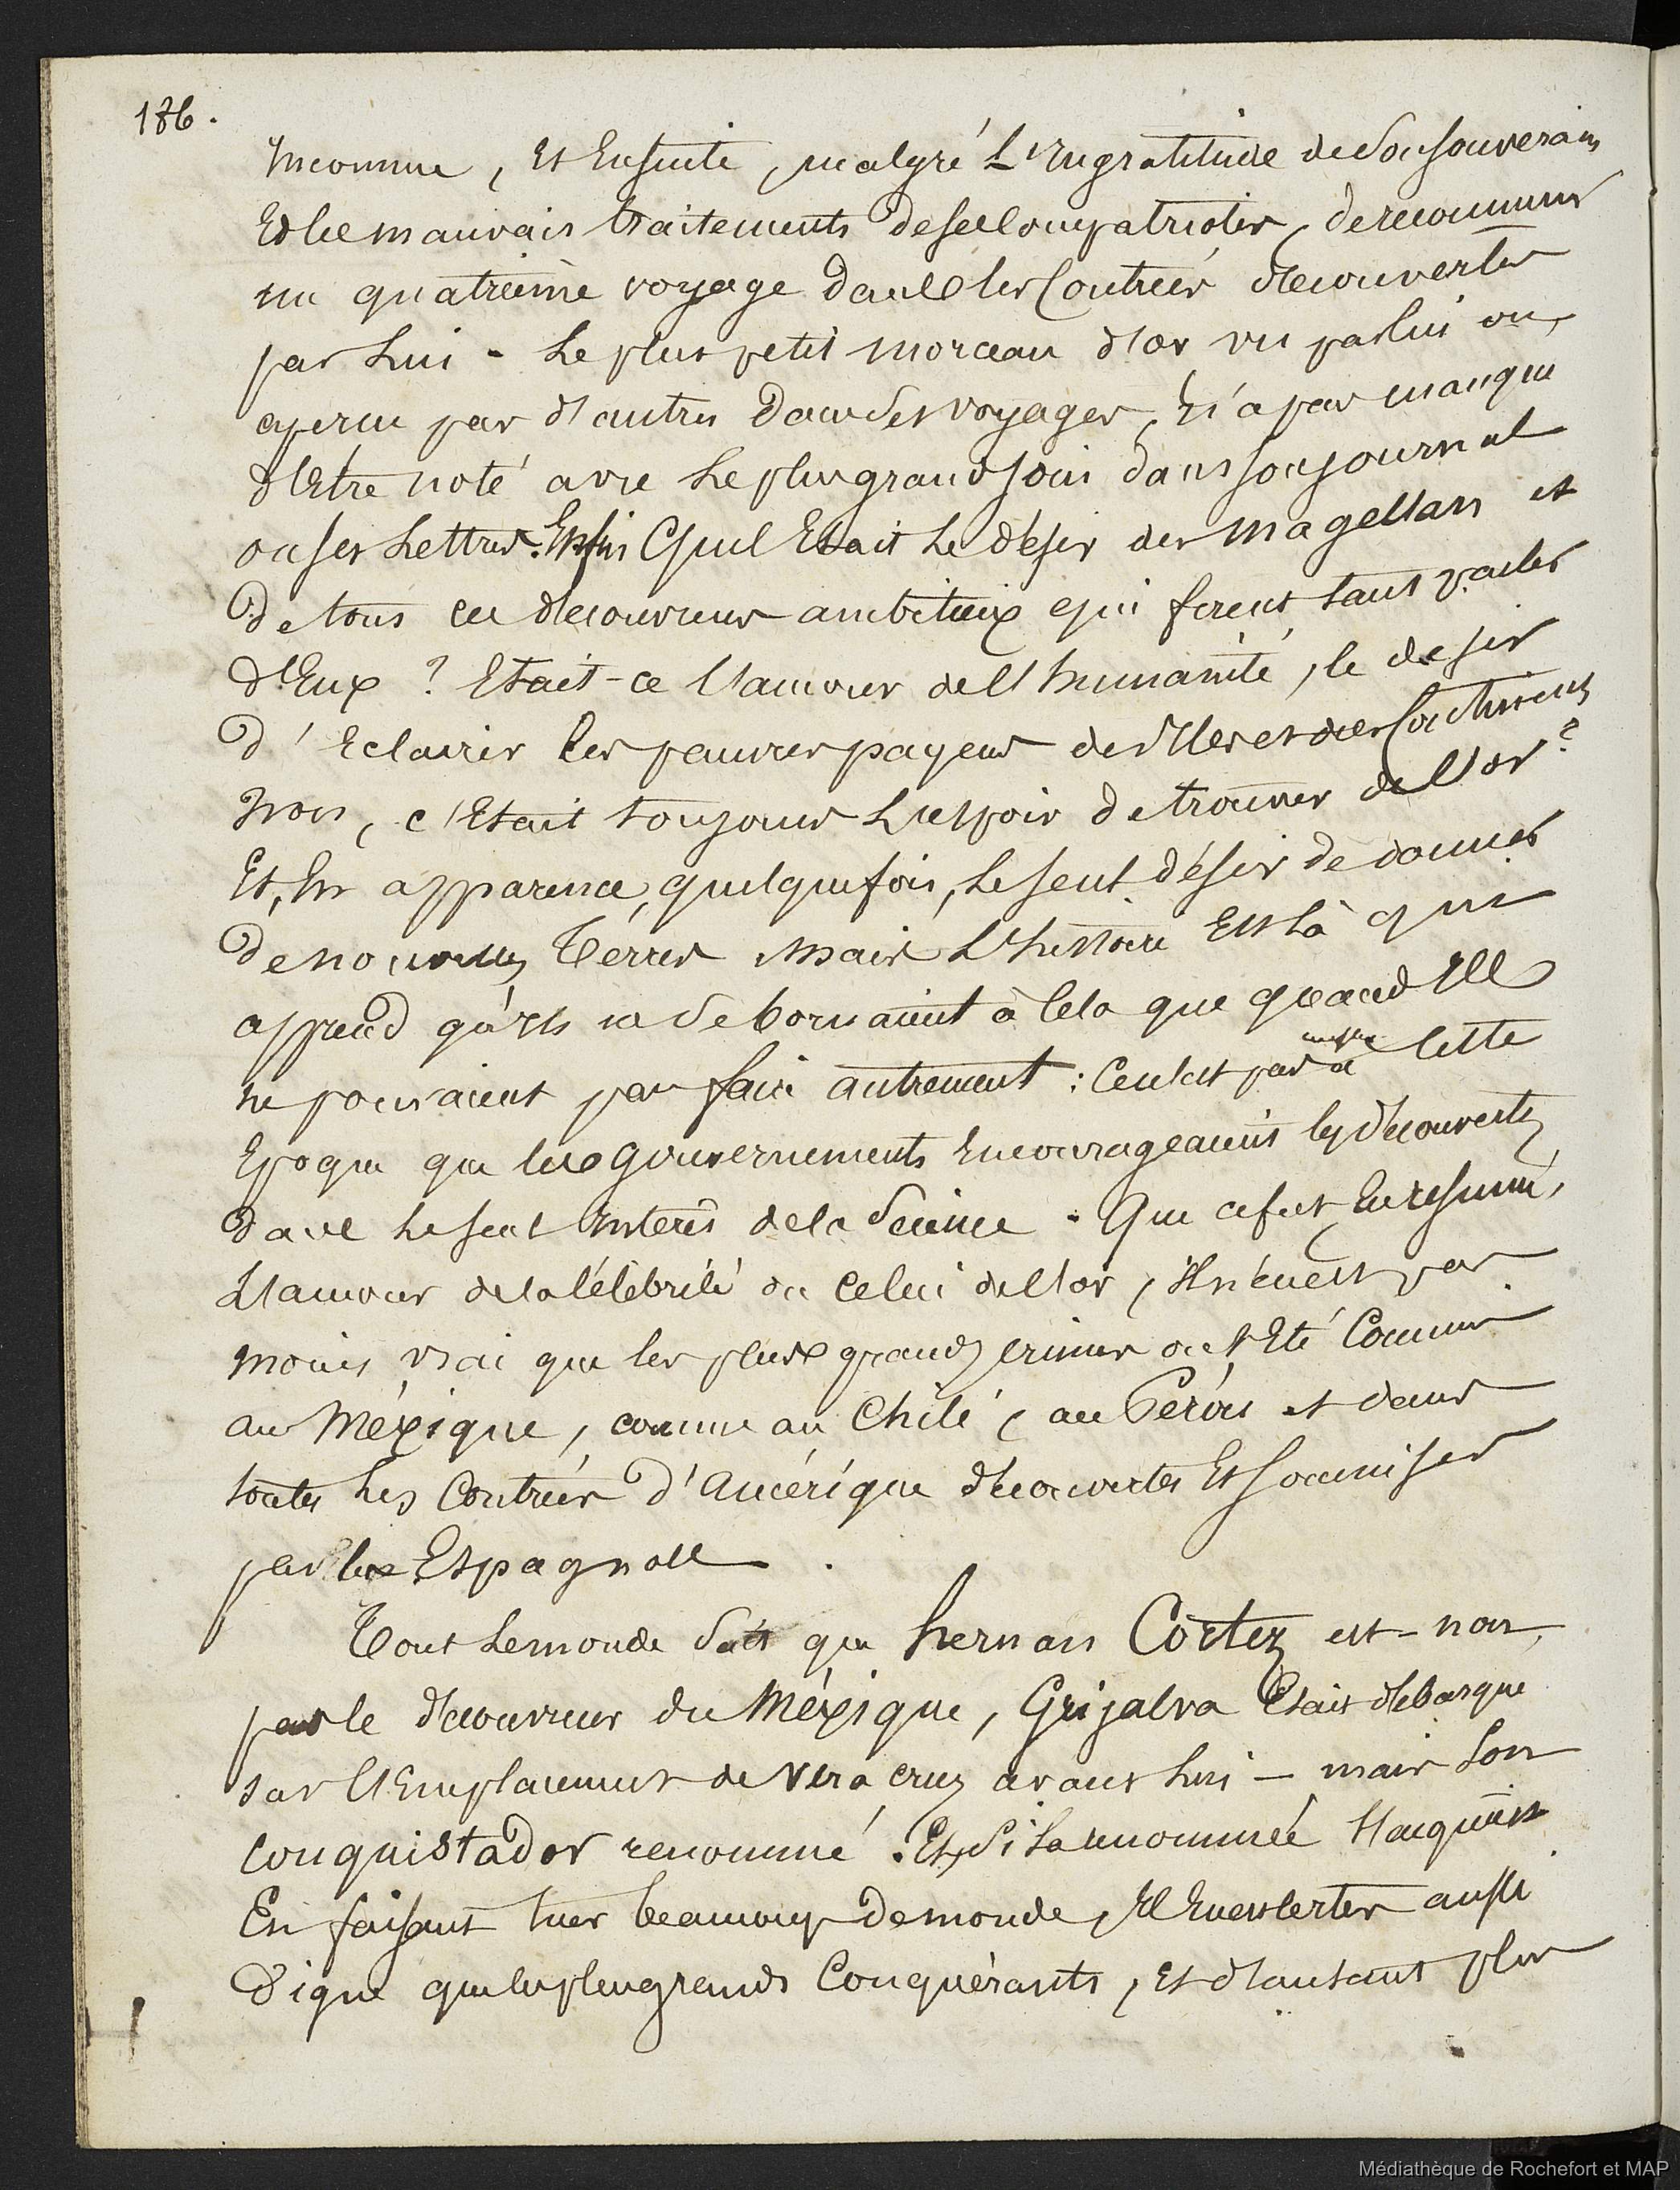 186.
Inconnue, Et Ensuite, malgré L'Ingratitude de Son souverain
Et les mauvais traitements de ses Compatriotes, de recommencer
un quatrième voyage dans les Contrées découvertes
par Lui - Le plus petit morceau d'or vu par lui ou
aperçu par d'autres dans Ses voyages, n'a pas manqué
d'Etre noté avec Le plus grand soin dans son journal
ou ses Lettres. Enfin Quel Etait Le désir des Magellan et
De tous ces découvreurs ambitieux qui firent tant parler
d'Eux ? Etait-ce l'amour de l'humanité, le desir
D'Eclairer les pauvres payens des Iles et des Continents ?
Non, c'Etait toujours L'espoir de trouver de l'or
Et, En apparence, quelquefois, Le seul désir de donner
De nouvelles Terres mais L'histoire Est là qui
apprend qu'Ils ne Se bornaient à Cela que quand Ils
ne pouvaient pas faire autrement : Ce n'est pas à cette
Epoque que les gouvernements Encourageaient les découvertes
dans Le seul Intérêt de la Science . Que ce fut En résumé,
L'amour de la Célébrité ou Celui de l'or, Il n'en est pas
moins vrai que les plus grands crimes ont Eté Commis
au Méxique, comme au Chili, au Pérou et dans
toutes Les Contrées d'Amérique découvertes Et soumises
par les Espagnols .
Tout Le monde Sait que hernan Cortez est - non
pas le découvreur du Méxique, Grijalva Etait débarqué
sur l'Emplacement de Vera cruz avant Lui - mais Son
conquistador renommé . Et, Si La renommée s'acquiert
En faisant tuer beaucoup de monde, Il En est certes aussi
Digne que les plus grands Conquérants, Et d'autant plus
Médiathèque de Rochefort et MAP